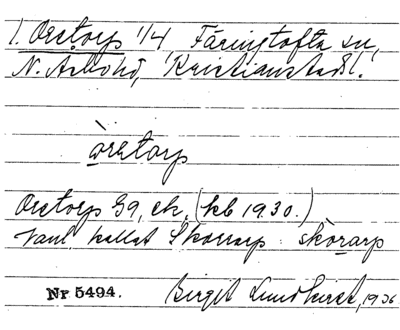 1. Oretorp 1/4 Färingtofta sn,
N. Åsbohd, Kristianstads l.
òretorp
Oretorp G9, ek. (kb 1930.)
Vanl. kallat Skorrarp: skòrarp
Nr 5494. Birgit Lundkvist, 1936